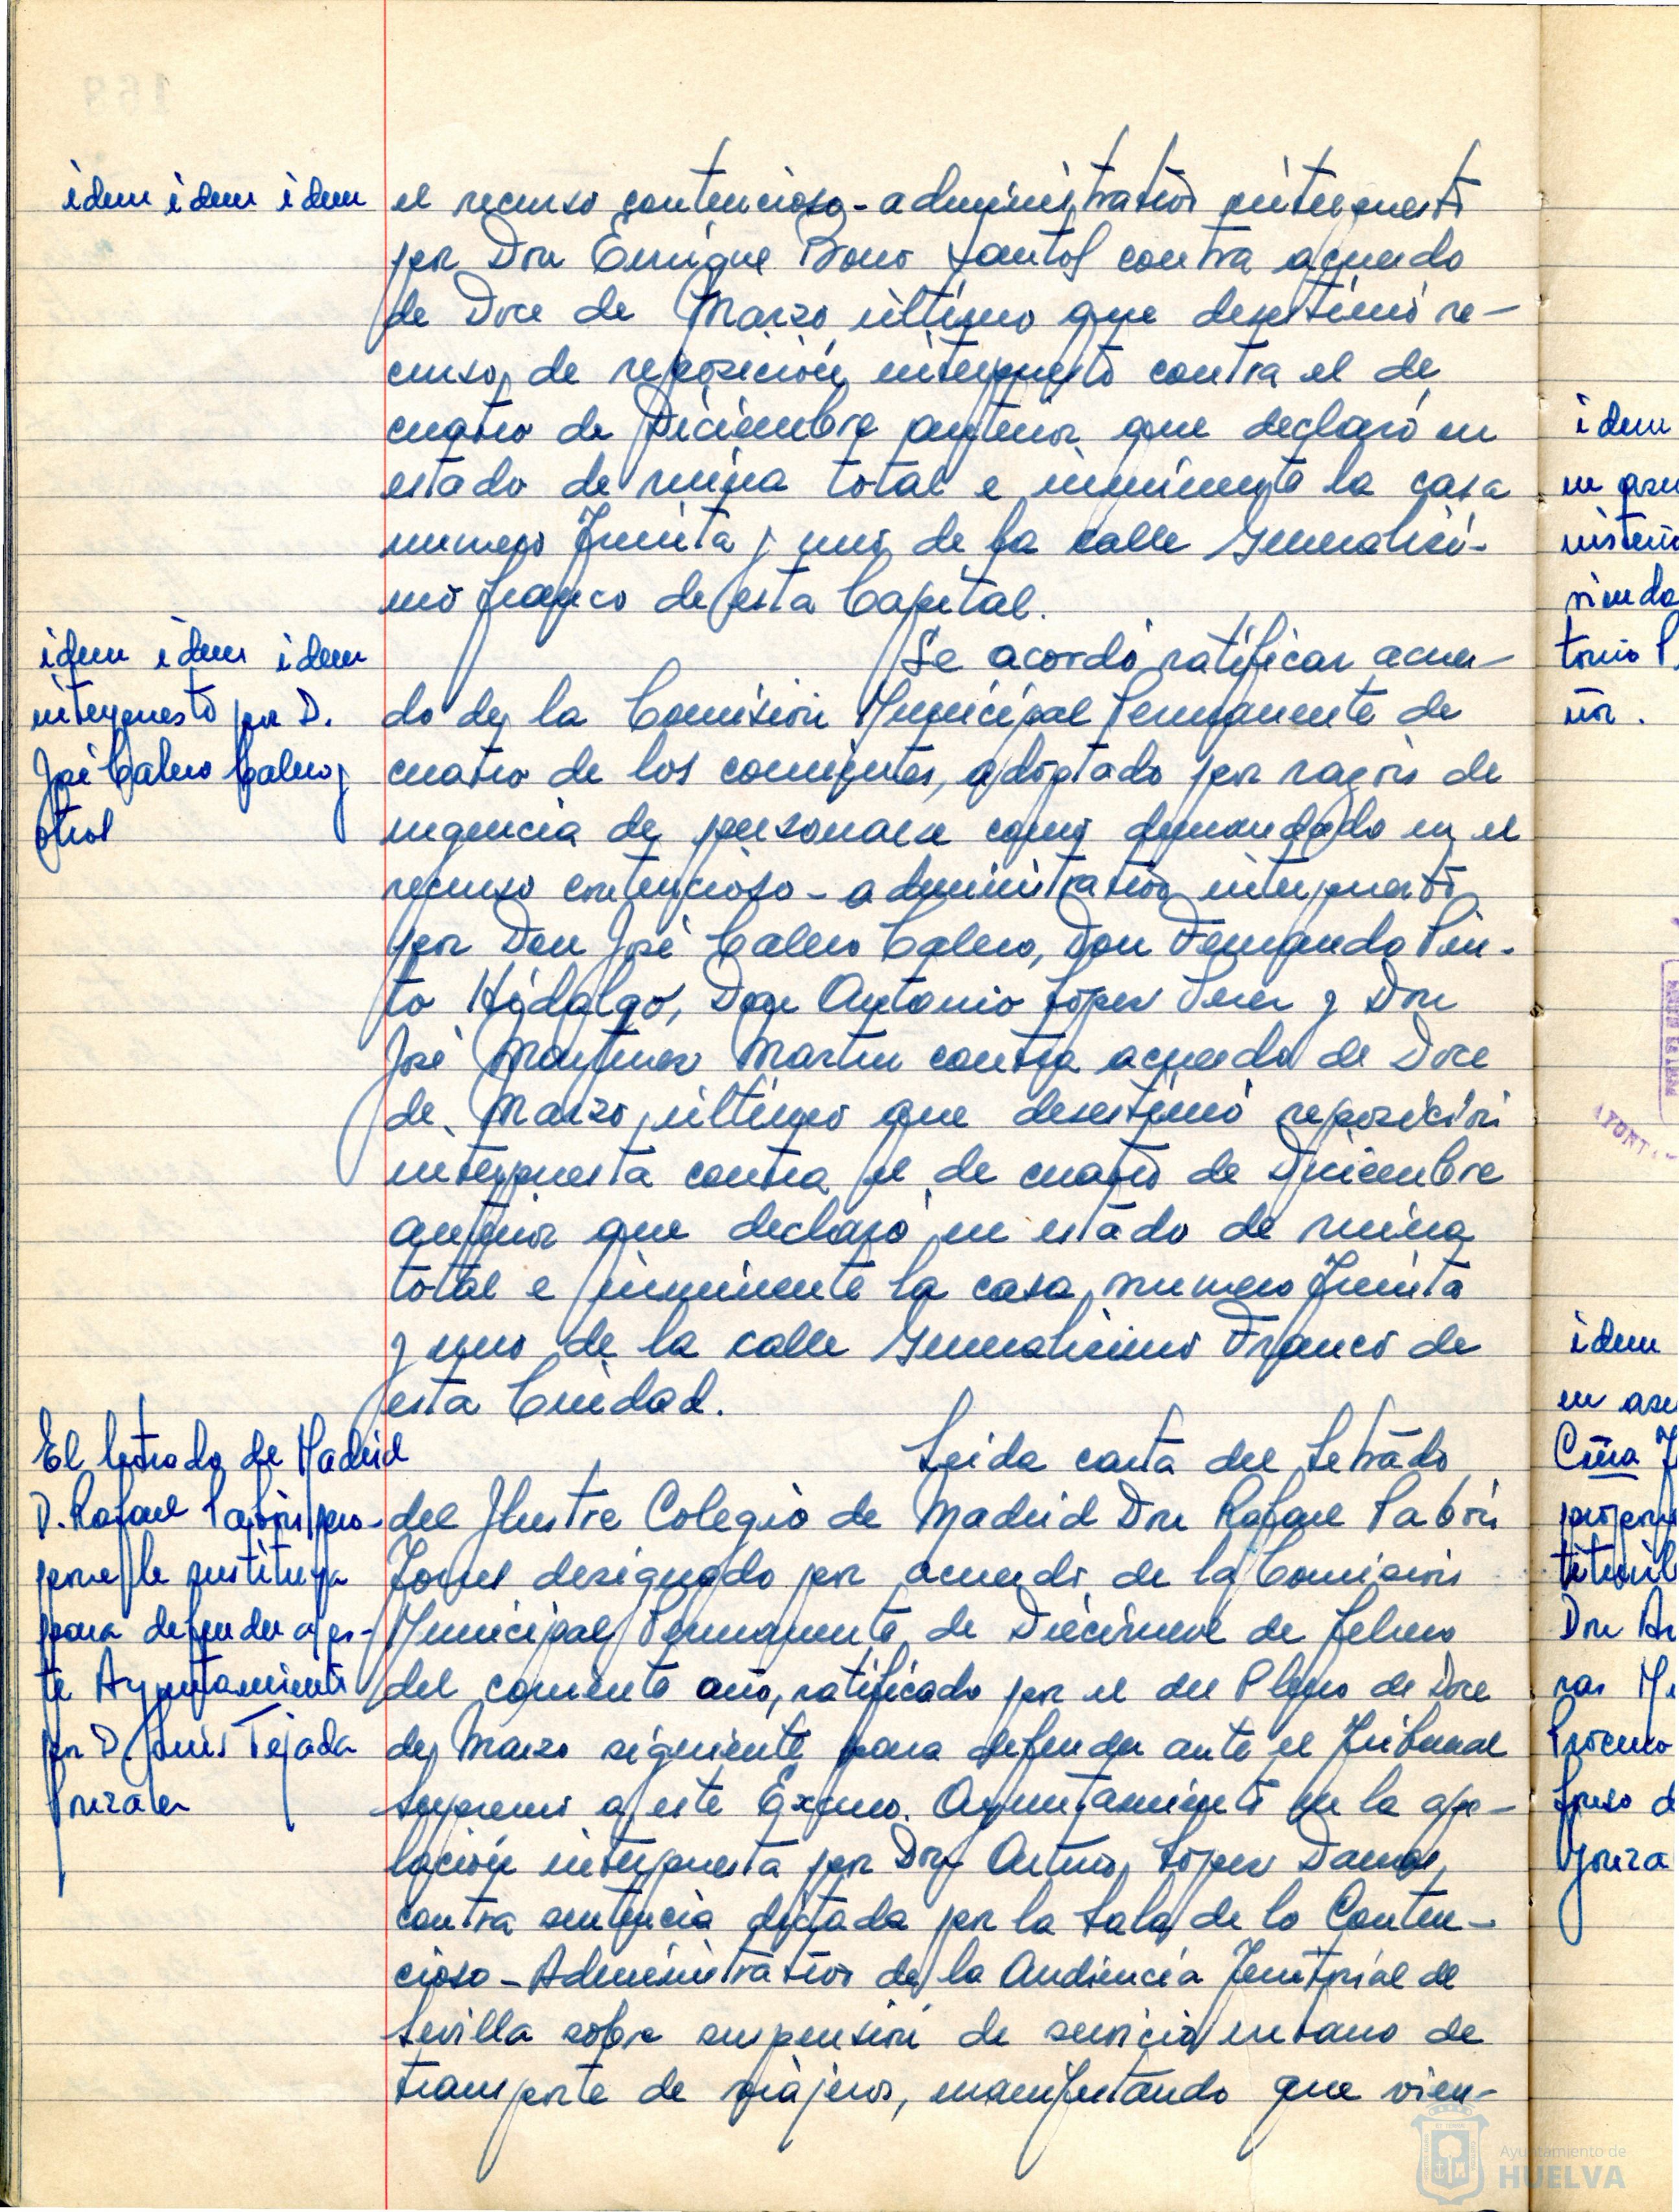 idem idem idem
el recurso contencioso-administrativo interpuesto
por Don Enrique Bono Santos contra acuerdo
de Doce de Marzo último que desestimó re-
curso de reposición interpuesto contra el de
cuatro de Diciembre anterior que declaró en
estado de ruina total e inminente la casa
numero Treinta y uno de la calle Generalísi-
mo franco de esta Capital.
idem idem idem
interpuesto por D.
José Calero Calero y
otros
Se acordó ratificar acuer-
do de la Comisión Municipal Permanente de
cuatro de los corrientes, adoptado por razón de
urgencia de personarse como demandado en el
recurso contencioso-administrativo interpuesto
por Don José Calero Calero, Don Fernando Pin-
to Hidalgo, Don Antonio López Perez y Don
José Martinez Martin contra acuerdo de Doce
de Marzo último que desestimó reposición
interpuesta contra el de cuatro de Diciembre
anterior que declaró en estado de ruina
total e inminente la casa numero Treinta
y uno de la calle Generalisimo Franco de
esta Ciudad.
El letrado de Madrid
D. Rafael Pabón pro-
pone le sustituya
para defender a es-
te Ayuntamiento
por D. Luis Tejada
Gonzalez
Leida carta del Letrado
del Ilustre Colegio de Madrid Don Rafael Pabón
Torres designado por acuerdo de la Comisión
Municipal Permanente de Diecinueve de febrero
del corriente año, ratificado por el del Pleno de Doce
de Marzo siguiente para defender ante el Tribunal
Supremo a este Excmo. Ayuntamiento en la ape-
lación interpuesta por Don Arturo López Damas,
contra sentencia dictada por la Sala de lo Conten-
cioso-Administrativo de la Audiencia Territorial de
Sevilla sobre suspensión de servicio urbano de
transporte de viajeros, manifestando que vien-
idem
en
tonio P.
ñor.
idem
en
Ciña
Don Ar
ras
Ayuntamiento de
HUELVA